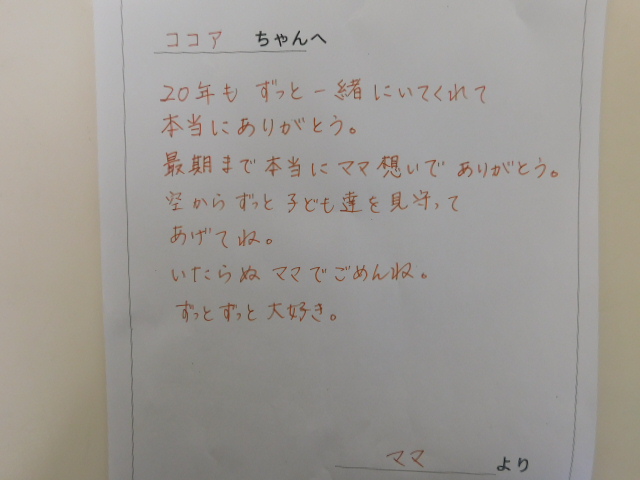 ココア ちゃんへ
20年も ずっと一緒にいてくれて
本当にありがとう。
最期まで本当にママ想いでありがとう。
空からずっと子ども達を見守って
あげてね。
いたらぬママでごめんね。
ずっとずっと大好き。
ママ より